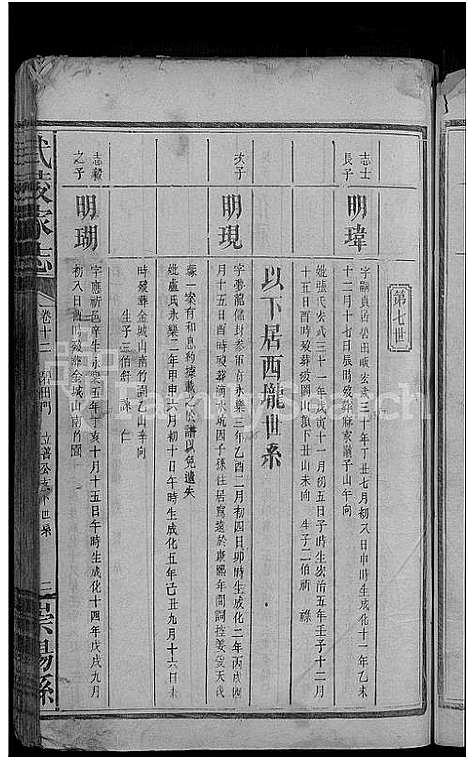 第七世
志士長子
明瑋
字嗣貞公號田畯宏武三十年丁丑七月初八日申時生成化十一年乙未
十二月十七日辰時歿葬麻家嶺子山午向
妣張氏宏武三十一年戊寅十一月初五日子時生宏治五年壬子十二月
十五日酉時歿葬坡圖山嶺下丑山未向 生子二伯祈 祿
以下居西壠世系
次子
明現
字夢龍儲封參軍省永樂三年乙酉二月初四日卯時生成化二年丙戌四
月十五日酉時歿葬滴水坑因子孫往居寫遠於康熙年間詞控姜 天茂
蘇一案有和息約據載之於譜以免遺失
妣盧氏永樂二年甲申六月初十日午時生成化五年己丑九月十六日未
時歿葬金城山南竹園乙山辛向
生子三伯舒 謙 仁
志毅之子
明瑚
字應祈邑庠生永樂五年丁亥十月十五日午時生成化十四年戊戌九月
初八日酉時歿葬金城山南竹園
武陵家志
卷十二
立著公支下世系
二
崇陽縣